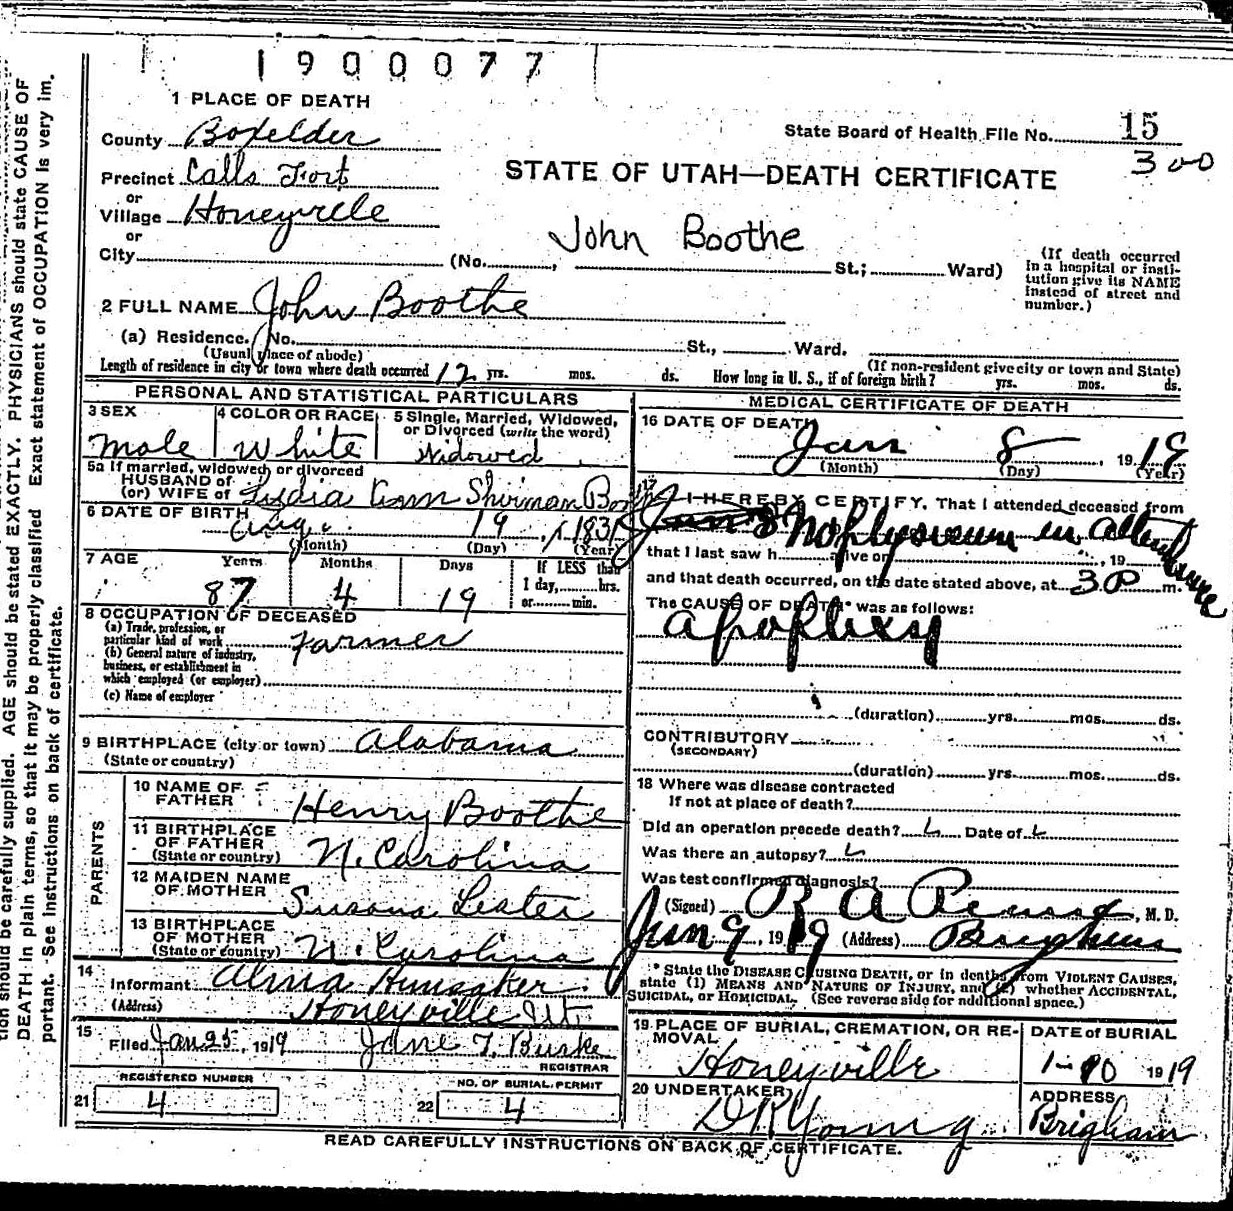 1900077
1 PLACE OF DEATH
County Boxelder
State Board of Health File No. 15
300
Precinct Calls Fort
STATE OF UTAH—DEATH CERTIFICATE
or
Village Honeyville
or
City
John Boothe
(No. , St.; Ward)
(If death occurred in a hospital or institution give its NAME instead of street and number.)
2 FULL NAME John Boothe
(a) Residence. No. St., Ward.
(Usual place of abode) (If non-resident give city or town and State)
Length of residence in city or town where death occurred 12 yrs. mos. ds. How long in U. S., if of foreign birth? yrs. mos. ds.
PERSONAL AND STATISTICAL PARTICULARS
3 SEX Male
4 COLOR OR RACE White
5 Single, Married, Widowed, or Divorced (write the word) Widowed
5a If married, widowed, or divorced
HUSBAND of
(or) WIFE of Lydia Ann
6 DATE OF BIRTH Aug. 19, 1831
(Month) (Day) (Year)
7 AGE Years Months Days If LESS than
1 day, hrs.
or min.
87 4 19
8 OCCUPATION OF DECEASED
(a) Trade, profession, or particular kind of work Farmer
(b) General nature of industry, business, or establishment in which employed (or employer)
(c) Name of employer
9 BIRTHPLACE (city or town) Alabama
(State or country)
PARENTS
10 NAME OF FATHER Henry Boothe
11 BIRTHPLACE OF FATHER (State or country) N. Carolina
12 MAIDEN NAME OF MOTHER Lester
13 BIRTHPLACE OF MOTHER (State or country) N. Carolina
14
Informant Alma Hunsaker
(Address) Honeyville Ut.
15
Filed Jan 25, 1919 Jane T. Burke
REGISTRAR
REGISTERED NUMBER
21 4
NO. OF BURIAL PERMIT
22 4
MEDICAL CERTIFICATE OF DEATH
16 DATE OF DEATH
Jan 8, 1919
(Month) (Day) (Year)
17
I HEREBY CERTIFY, That I attended deceased from
No in attendance
that I last saw h alive on , 19
and that death occurred, on the date stated above, at 3 P m.
The CAUSE OF DEATH* was as follows:
apoplexy
(duration) yrs. mos. ds.
CONTRIBUTORY
(SECONDARY)
(duration) yrs. mos. ds.
18 Where was disease contracted
If not at place of death?
Did an operation precede death? Date of
Was there an autopsy?
Was test confirmed diagnosis?
(Signed) R A , M. D.
Jan 9, 1919 (Address) Brigham
* State the DISEASE CAUSING DEATH, or in deaths from VIOLENT CAUSES,
state (1) MEANS AND NATURE OF INJURY, and (2) whether ACCIDENTAL,
SUICIDAL, or HOMICIDAL. (See reverse side for additional space.)
19 PLACE OF BURIAL, CREMATION, OR REMOVAL
Honeyville
DATE of BURIAL
1-10 1919
20 UNDERTAKER
Young
ADDRESS
Brigham
READ CAREFULLY INSTRUCTIONS ON BACK OF CERTIFICATE.
tion should be carefully supplied. AGE should be stated EXACTLY. PHYSICIANS should state CAUSE OF
DEATH in plain terms, so that it may be properly classified. Exact statement of OCCUPATION is very im-
portant. See instructions on back of certificate.